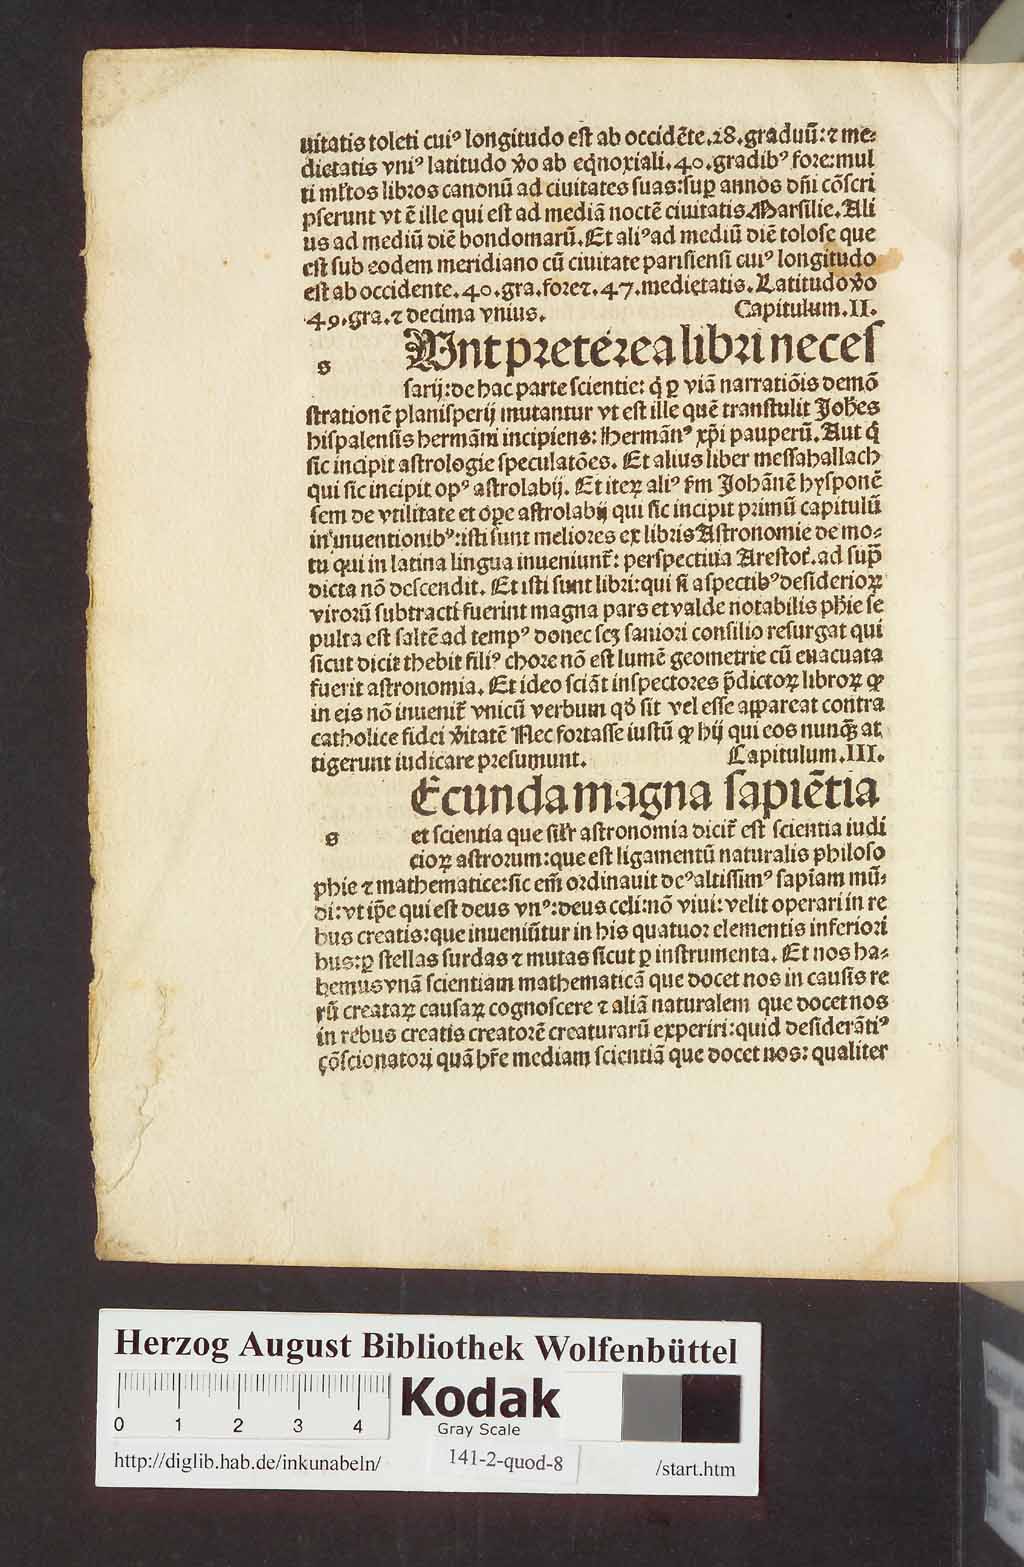 uitatis toleti cuiꝰ longitudo est ab occidẽte.28.graduũ:⁊ me-
dietatis vniꝰ latitudo ṽo ab eq̃noxiali.40.gradibꝰ fore:mul
ti mĩtos libros canonũ ad ciuitates suas:suꝑ annos dñi cõscri
pserunt vt ẽ ille qui est ad mediã noctẽ ciuitatis Marsilie.Ali
us ad mediũ diẽ bondomarũ.Et aliꝰ ad mediũ diẽ tolose que
est sub eodem meridiano cũ ciuitate parisiensi cuiꝰ longitudo
est ab occidente.40.gra.fore⁊.47.medietatis.Latitudo ṽo
49.gra.⁊ decima vnius. Capitulum.II.
s Vnt preterea libri neces
sarij:de hac parte scientie: q̃ ꝑ viã narratiõis demõ
strationẽ planisperij mutantur vt est ille quẽ transtulit Joh̃es
hispalensis hermãni incipiens: Hermãnꝰ xp̃i pauperũ.Aut q̃
sic incipit astrologie speculatões. Et alius liber messahallach
qui sic incipit opꝰ astrolabij. Et iteꝝ aliꝰ ẜm Johãnẽ hysponẽ
sem de vtilitate et oꝑe astrolabij qui sic incipit primũ capitulũ
in inuentionibꝰ:isti sunt meliores ex libris Astronomie de mo-
tu qui in latina lingua inueniunt̃: perspectiua Arestot̃.ad sup̃
dicta nõ descendit. Et isti sunt libri:qui si aspectibꝰ desiderioꝝ
virorũ subtracti fuerint magna pars et valde notabilis ph̃ie se
pulta est saltẽ ad tempꝰ donec scꝫ saniori consilio resurgat qui
sicut dicit thebit filiꝰ chore nõ est lumẽ geometrie cũ euacuata
fuerit astronomia. Et ideo sciãt inspectores p̃dictoꝝ libroꝝ ꝙ
in eis nõ inuenit̃ vnicũ verbum qd̃ sit vel esse appareat contra
catholice fidei ṽitatẽ Nec fortasse iustũ ꝙ hij qui eos nunꝗ̃ at
tigerunt iudicare presumunt. Capitulum.III.
s Ecunda magna sapiẽtia
et scientia que sil̃r astronomia dicit̃ est scientia iudi
cioꝝ astrorum:que est ligamentũ naturalis philoso
phie ⁊ mathematice:sic em̃ ordinauit deꝰ altissimꝰ sapiam mũ-
di:vt ip̃e qui est deus vnꝰ:deus celi:nõ viui:velit operari in re
bus creatis:que inueniũtur in his quatuor elementis inferiori
bus:ꝑ stellas surdas ⁊ mutas sicut ꝑ instrumenta. Et nos ha-
bemus vnã scientiam mathematicã que docet nos in causis re
rũ creataꝝ causaꝝ cognoscere ⁊ aliã naturalem que docet nos
in rebus creatis creatorẽ creaturarũ experiri:quid desiderãtiꝰ
cõscionatori quã hr̃e mediam scientiã que docet nos: qualiter
Herzog August Bibliothek Wolfenbüttel
0 1 2 3 4
Kodak
Gray Scale
http://diglib.hab.de/inkunabeln/ 141-2-quod-8 /start.htm